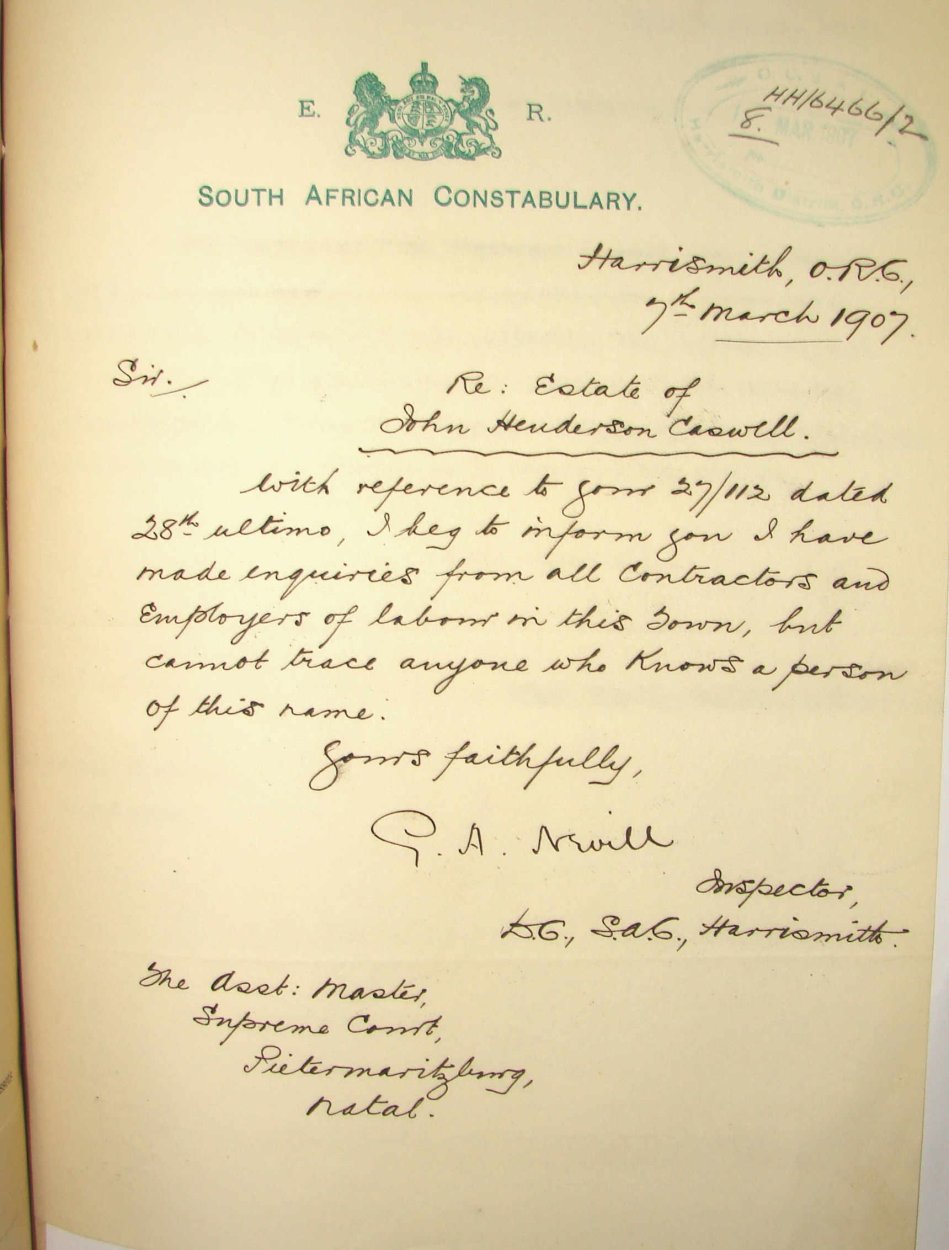 E. R.
SOUTH AFRICAN CONSTABULARY.
HH/6466/2
8.
MAR 1907
Harrismith, O.R.C.,
7th March 1907.
Sir.
Re: Estate of
John Henderson Caswell.
With reference to your 27/112 dated
28th ultimo, I beg to inform you I have
made enquiries from all Contractors and
Employers of labour in this Town, but
cannot trace anyone who Knows a person
of this name.
Yours faithfully,
G. A. Nevill
Inspector,
D.C., S.A.C., Harrismith.
The Asst: Master,
Supreme Court,
Pietermaritzburg,
Natal.